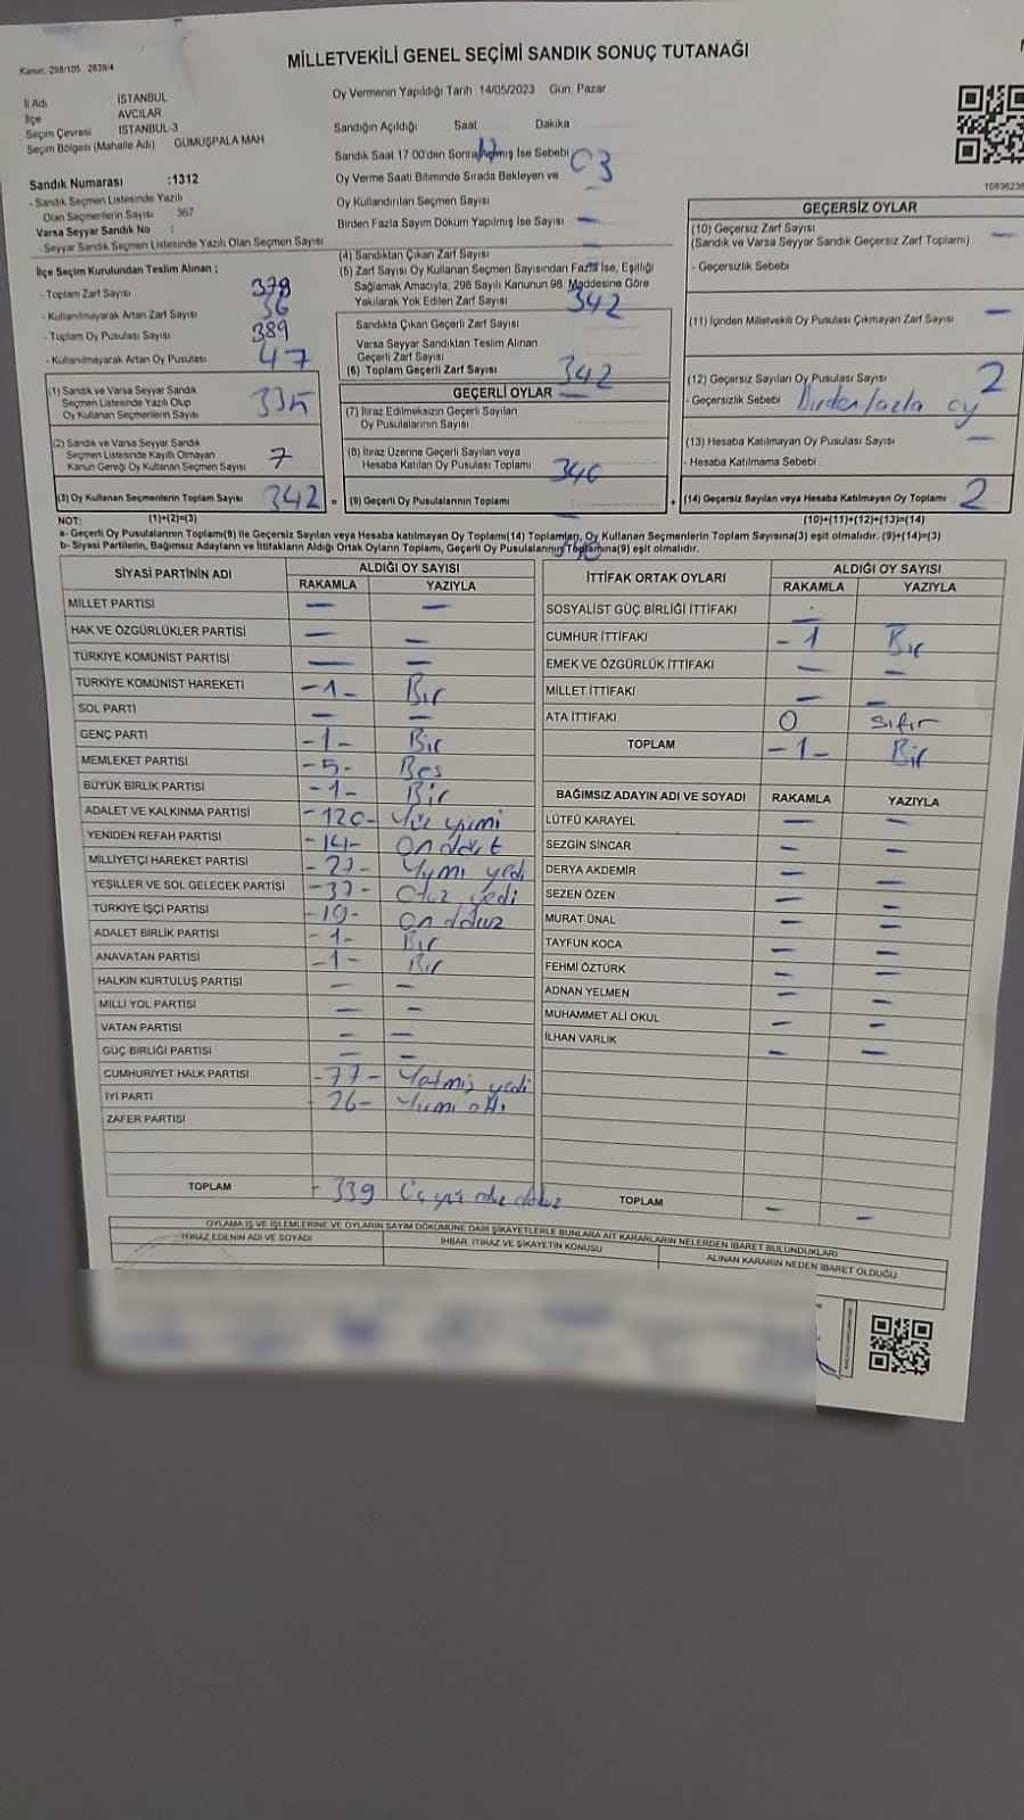 MİLLETVEKİLİ GENEL SEÇİMİ SANDIK SONUÇ TUTANAĞI
Kanun: 298/105 2839/4
İl Adı İSTANBUL
İlçe AVCILAR
Seçim Çevresi İSTANBUL-3
Seçim Bölgesi (Mahalle Adı) GÜMÜŞPALA MAH
Sandık Numarası :1312
- Sandık Seçmen Listesinde Yazılı
Olan Seçmenlerin Sayısı 367
Varsa Seyyar Sandık No :
- Seyyar Sandık Seçmen Listesinde Yazılı Olan Seçmen Sayısı
Oy Vermenin Yapıldığı Tarih 14/05/2023 Gün: Pazar
Sandığın Açıldığı Saat Dakika
Sandık Saat 17:00'den Sonra Açılmış İse Sebebi
Oy Verme Saati Bitiminde Sırada Bekleyen ve
Oy Kullandırılan Seçmen Sayısı
03
Birden Fazla Sayım Döküm Yapılmış İse Sayısı —
İlçe Seçim Kurulundan Teslim Alınan :
- Toplam Zarf Sayısı 378
- Kullanılmayarak Artan Zarf Sayısı 36
- Toplam Oy Pusulası Sayısı 389
- Kullanılmayarak Artan Oy Pusulası 47
(1) Sandık ve Varsa Seyyar Sandık
Seçmen Listesinde Yazılı Olup
Oy Kullanan Seçmenlerin Sayısı 335
(2) Sandık ve Varsa Seyyar Sandık
Seçmen Listesinde Kayıtlı Olmayan
Kanun Gereği Oy Kullanan Seçmen Sayısı 7
(3) Oy Kullanan Seçmenlerin Toplam Sayısı 342
(1)+(2)=(3)
(4) Sandıktan Çıkan Zarf Sayısı
(5) Zarf Sayısı Oy Kullanan Seçmen Sayısından Fazla İse, Eşitliği
Sağlamak Amacıyla, 298 Sayılı Kanunun 98. Maddesine Göre
Yakılarak Yok Edilen Zarf Sayısı
342
Sandıkta Çıkan Geçerli Zarf Sayısı
Varsa Seyyar Sandıktan Teslim Alınan
Geçerli Zarf Sayısı
(6) Toplam Geçerli Zarf Sayısı 342
GEÇERLİ OYLAR
(7) İtiraz Edilmeksizin Geçerli Sayılan
Oy Pusulalarının Sayısı
(8) İtiraz Üzerine Geçerli Sayılan veya
Hesaba Katılan Oy Pusulası Toplamı
340
= (9) Geçerli Oy Pusulalarının Toplamı
GEÇERSİZ OYLAR
(10) Geçersiz Zarf Sayısı
(Sandık ve Varsa Seyyar Sandık Geçersiz Zarf Toplamı) —
- Geçersizlik Sebebi
(11) İçinden Milletvekili Oy Pusulası Çıkmayan Zarf Sayısı —
(12) Geçersiz Sayılan Oy Pusulası Sayısı 2
- Geçersizlik Sebebi Birden fazla oy
(13) Hesaba Katılmayan Oy Pusulası Sayısı —
- Hesaba Katılmama Sebebi
+ (14) Geçersiz Sayılan veya Hesaba Katılmayan Oy Toplamı 2
(10)+(11)+(12)+(13)=(14)
NOT:
a- Geçerli Oy Pusulalarının Toplamı(9) ile Geçersiz Sayılan veya Hesaba katılmayan Oy Toplamı(14) Toplamları, Oy Kullanan Seçmenlerin Toplam Sayısına(3) eşit olmalıdır. (9)+(14)=(3)
b- Siyasi Partilerin, Bağımsız Adayların ve İttifakların Aldığı Ortak Oyların Toplamı, Geçerli Oy Pusulalarının Toplamına(9) eşit olmalıdır.
SİYASİ PARTİNİN ADI ALDIĞI OY SAYISI
RAKAMLA YAZIYLA
MİLLET PARTİSİ — —
HAK VE ÖZGÜRLÜKLER PARTİSİ — —
TÜRKİYE KOMÜNİST PARTİSİ — —
TÜRKİYE KOMÜNİST HAREKETİ -1- Bir
SOL PARTİ — —
GENÇ PARTİ -1- Bir
MEMLEKET PARTİSİ -5- Beş
BÜYÜK BİRLİK PARTİSİ -1- Bir
ADALET VE KALKINMA PARTİSİ -120- Yüz yirmi
YENİDEN REFAH PARTİSİ -14- On dört
MİLLİYETÇİ HAREKET PARTİSİ -27- Yirmi yedi
YEŞİLLER VE SOL GELECEK PARTİSİ -37- Otuz yedi
TÜRKİYE İŞÇİ PARTİSİ -19- On dokuz
ADALET BİRLİK PARTİSİ -1- Bir
ANAVATAN PARTİSİ -1- Bir
HALKIN KURTULUŞ PARTİSİ — —
MİLLİ YOL PARTİSİ — —
VATAN PARTİSİ — —
GÜÇ BİRLİĞİ PARTİSİ — —
CUMHURİYET HALK PARTİSİ -77- Yetmiş yedi
İYİ PARTİ 26- Yirmi altı
ZAFER PARTİSİ
TOPLAM - 339 Üç yüz otuz dokuz
İTTİFAK ORTAK OYLARI ALDIĞI OY SAYISI
RAKAMLA YAZIYLA
SOSYALİST GÜÇ BİRLİĞİ İTTİFAKI —
CUMHUR İTTİFAKI -1 Bir
EMEK VE ÖZGÜRLÜK İTTİFAKI — —
MİLLET İTTİFAKI — —
ATA İTTİFAKI 0 Sıfır
TOPLAM -1- Bir
BAĞIMSIZ ADAYIN ADI VE SOYADI RAKAMLA YAZIYLA
LÜTFÜ KARAYEL — —
SEZGİN SİNCAR — —
DERYA AKDEMİR — —
SEZEN ÖZEN — —
MURAT ÜNAL — —
TAYFUN KOCA — —
FEHMİ ÖZTÜRK — —
ADNAN YELMEN — —
MUHAMMET ALİ OKUL — —
İLHAN VARLIK — —
TOPLAM — —
OYLAMA İŞ VE İŞLEMLERİNE VE OYLARIN SAYIM DÖKÜMÜNE DAİR ŞİKAYETLERLE BUNLARA AİT KARARLARIN NELERDEN İBARET BULUNDUKLARI
İTİRAZ EDENİN ADI VE SOYADI İHBAR, İTİRAZ VE ŞİKAYETİN KONUSU ALINAN KARARIN NEDEN İBARET OLDUĞU